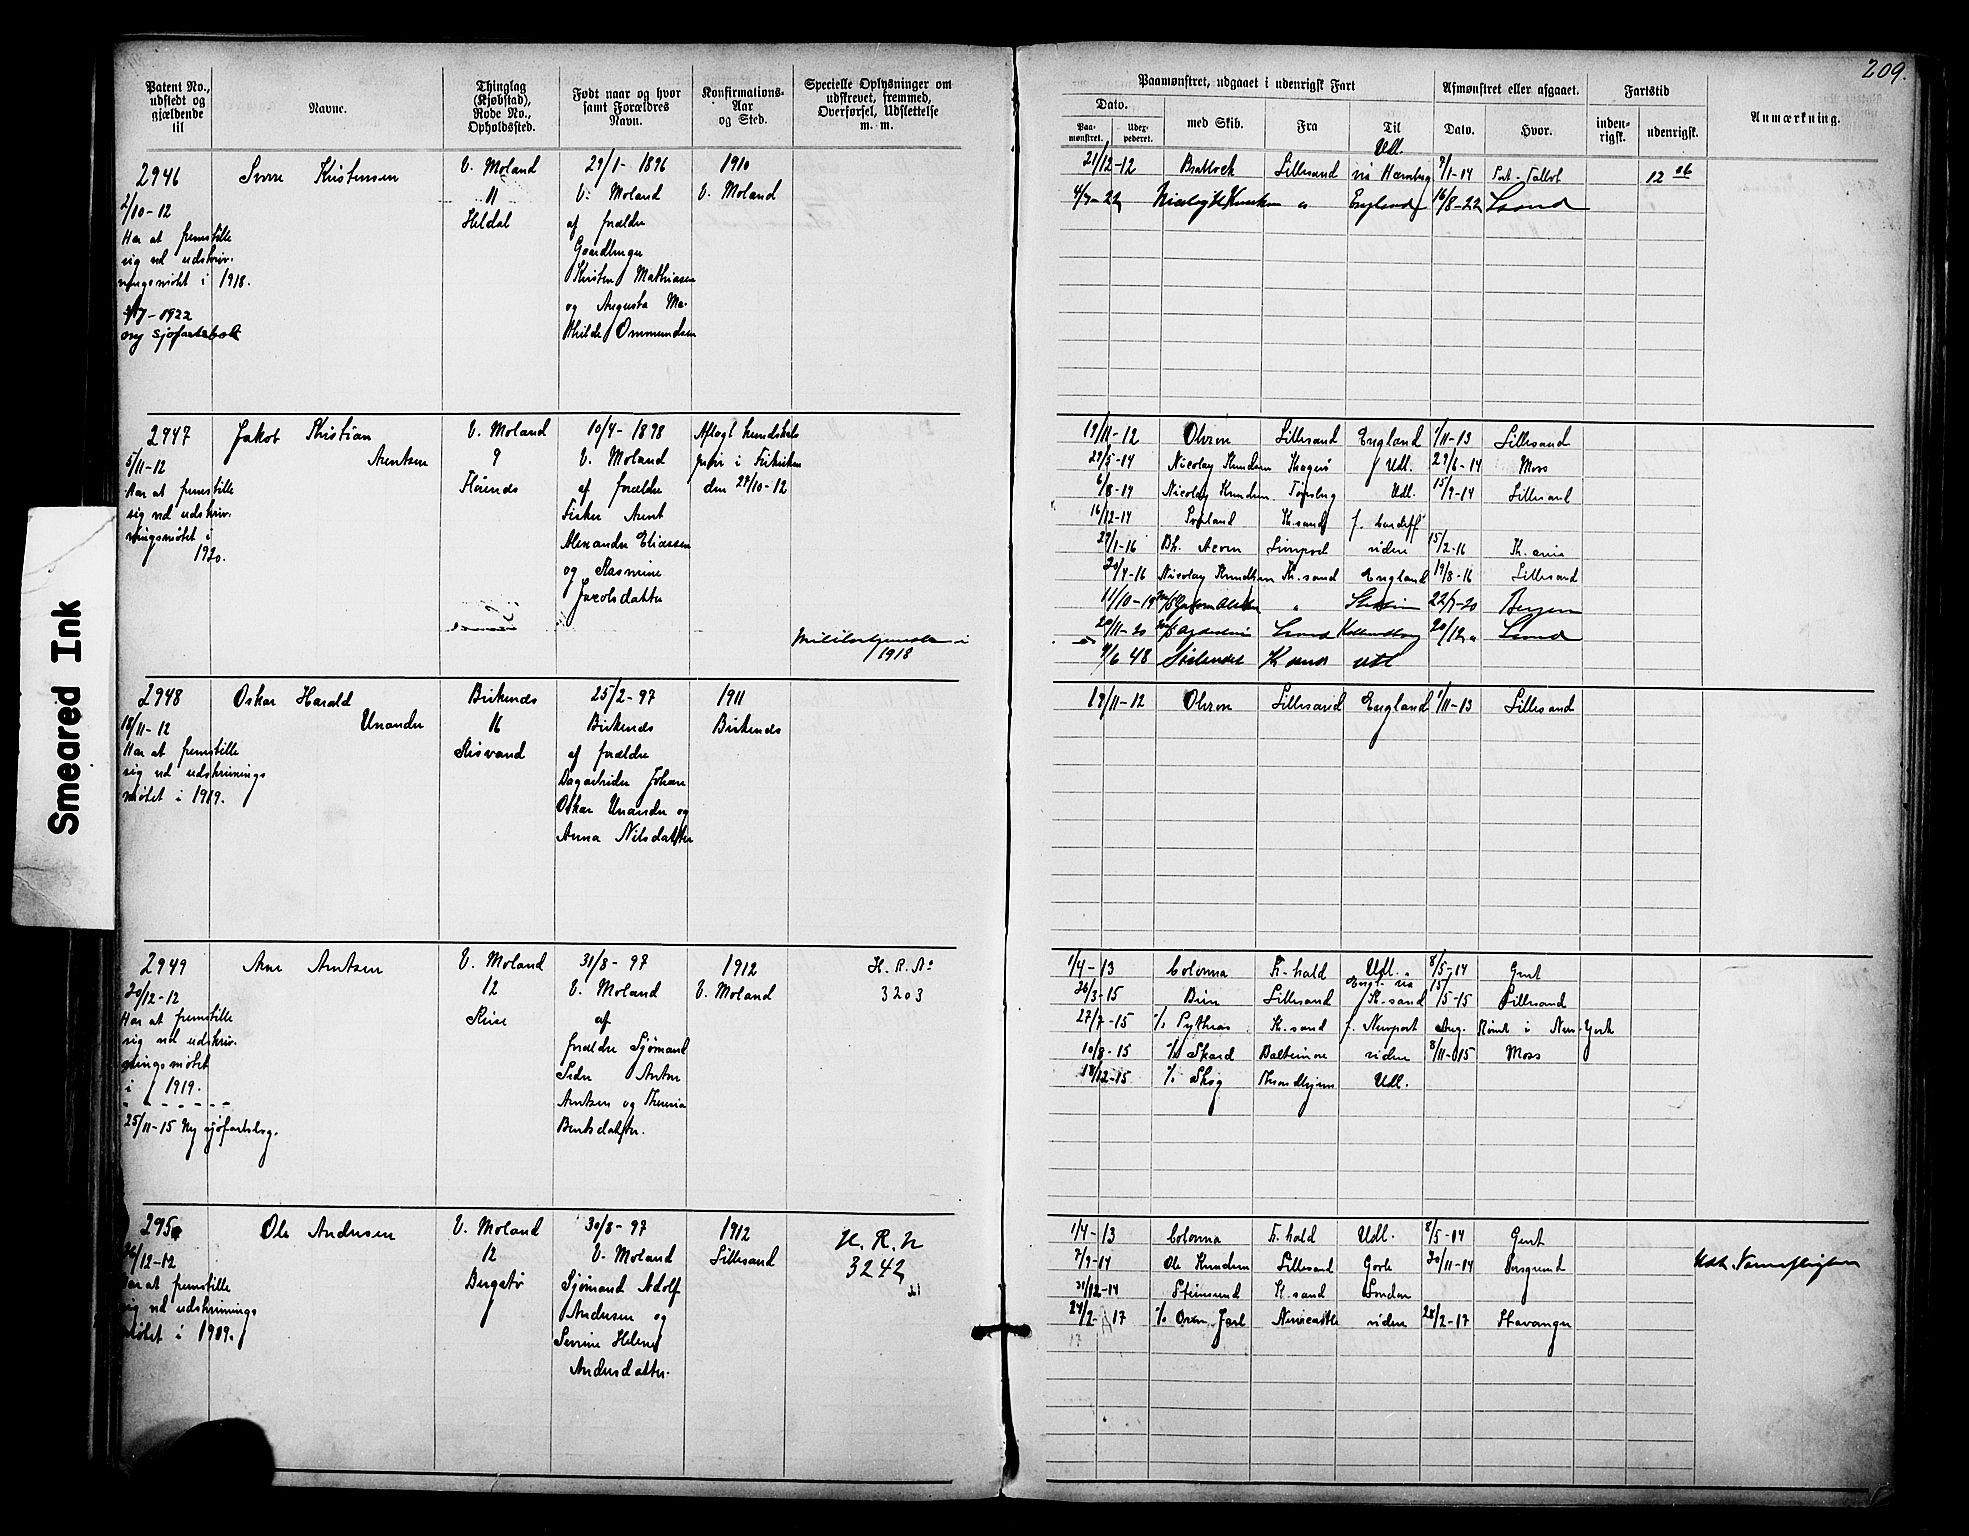 209.
Smeared Ink
Patent No., udstedt og gjældende til
Navne.
Thinglag (Kjøbstad), Rode No., Opholdssted.
Født naar og hvor samt Forældres Navn.
Konfirmations-Aar og Sted.
Specielle Oplysninger om udskrevet, fremmed, Overførsel, Udslettelse m. m.
Paamønstret, udgaaet i udenrigsk Fart
Afmønstret eller afgaaet.
Fartstid
Anmærkning.
Dato.
Paa-mønstret.
med Skib.
Fra
Til
Dato.
Hvor.
inden-rigsk.
udenrigsk.
2946
2/10-12
Har at fremstille
sig ved udskriv-
ningsmötet i 1918.
4/7-1922
ny sjøfartsbok
Sverre Kristensen
V. Moland
11
Heldal
29/1-1896
V. Moland
af forældre
Gaardbruger
Kristen Mathiasen
og Augusta Ma-
thilde Ommundsen
1910
V. Moland
Udl.
21/12-12 Lillesand 9/1-14 Port-Talbot 12 06
4/7-22 " England 16/8-22
2947
5/11-12
Har at fremstille
sig ved udskriv-
ningsmötet i
1920.
Jakob Kristian
Arentsen
V. Moland
9
10/4-1898
V. Moland
af forældre
Fisker Arent
Alexander Eliassen
og Rasmine
Jacobsdatter
Aflagt kundskabs
prøve i Frikirken
den 29/10-12
Militærtjeneste i
1918
19/11-12 Lillesand England 1/11-13 Lillesand
29/5-14 Nicolay Knudsen Udl. 29/6-14 Moss
6/8-14 Nicolay Knudsen Tønsberg Udl. 15/9-14 Lillesand
16/12-14 K.sand f. Cardiff
29/1-16 videre 15/2-16
20/4-16 Nicolay Knudsen K.sand England 19/8-16 Lillesand
11/10-19 " 22/7-20 Bergen
20/11-20 20/12
9/6 48 Sørlandet K sand utl
2948
18/11-12
Har at fremstille
sig ved udskrivnings
mötet i 1919.
Oskar Harald
Unander
Birkenes
16
Risvand
25/2-97
Birkenes
af forældre
Dagarbeider Johan
Oskar Unander og
Anna Nilsdatter
1911
Birkenes
19/11-12 Lillesand England 1/11-13 Lillesand
2949
20/12-12
Har at fremstille
sig ved udskriv-
ningsmötet
i 1919.
25/11-15 Ny sjøfartsbog.
Arne Arntsen
V. Moland
12
31/8-97
V. Moland
af
forældre Sjømand
Peder Anton
Arntsen og Theresia
Bentsdatter.
1912
V. Moland
H. R. No
3203
1/4-13 Colonna F.hald Udl. 8/5-14 Gent
26/3-15 Lillesand Engl. via K.sand 15/5-15 Lillesand
27/7-15 Pythias K.sand f. Newport Aug. Rømt i New-York
10/8-15 Skard Baltimore videre 8/11-15 Moss
18/12-15 Skog Trondhjem Udl.
2950
Har at fremstille
sig ved udskrivnings
mötet i 1919.
Ole Andersen
V. Moland
12
30/8-97
V. Moland
Sjømand Adolf
Andersen og
Severine Helene
Andersdatter.
1912
Lillesand
H. R. N
3242
1/4-13 Colonna F.hald Udl. 8/5-14 Gent
7/9-14 Ole Knudsen Lillesand Goole 30/11-14 Porsgrund
31/12-14 Steinsund K.sand London
24/2-17 Orren Jarl Newcastle videre 28/2-17 Stavanger